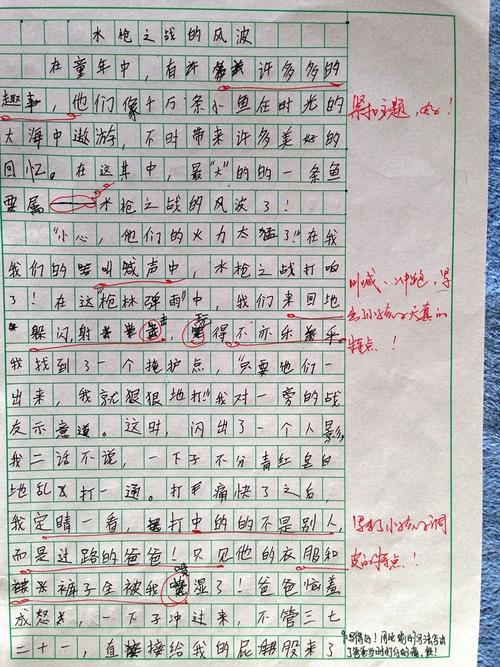 水枪之战的风波
在童年中，有许多多的
趣事，他们像千万条小鱼在时光的
大海中遨游，不时带来许多美好的
回忆。在这其中，最"大"的的一条鱼
要属水枪之战的风波了！
"小心，他们的火力太猛了！"在我
我们的叫喊声中，水枪之战打响
了！在这"枪林弹雨"中，我们来回地
躲闪，射击，玩得不亦乐乎
我找到了一个掩护点，"只要他们一
出来，我就狠狠地打！"我对一旁的战
友示意道。这时，闪出了一个人影，
我二话不说，一下子不分青红皂白
地乱打一通。打痛快了之后，
我定睛一看，打中的的不是别人，
而是过路的爸爸！只见他的衣服和
裤子全被我喷湿了！爸爸恼羞
成怒，一下子冲过来，不管三七
二十一，直接给我的屁股来了
紧扣主题，好！
叫喊、冲跑，写
出小孩子天真的
特点！
写出了小孩子调
皮的特点！